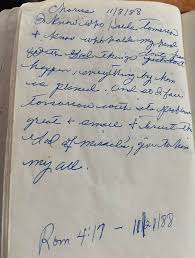 Chorus 11/8/88
I know who holds tomorrow
& know who holds my hand
things
happen, everything by Him
is planned. And so I face
tomorrow with its problems
great & small & trust the
God of miracles, give to Him
my all.
Rom 4:17 - 11/21/88